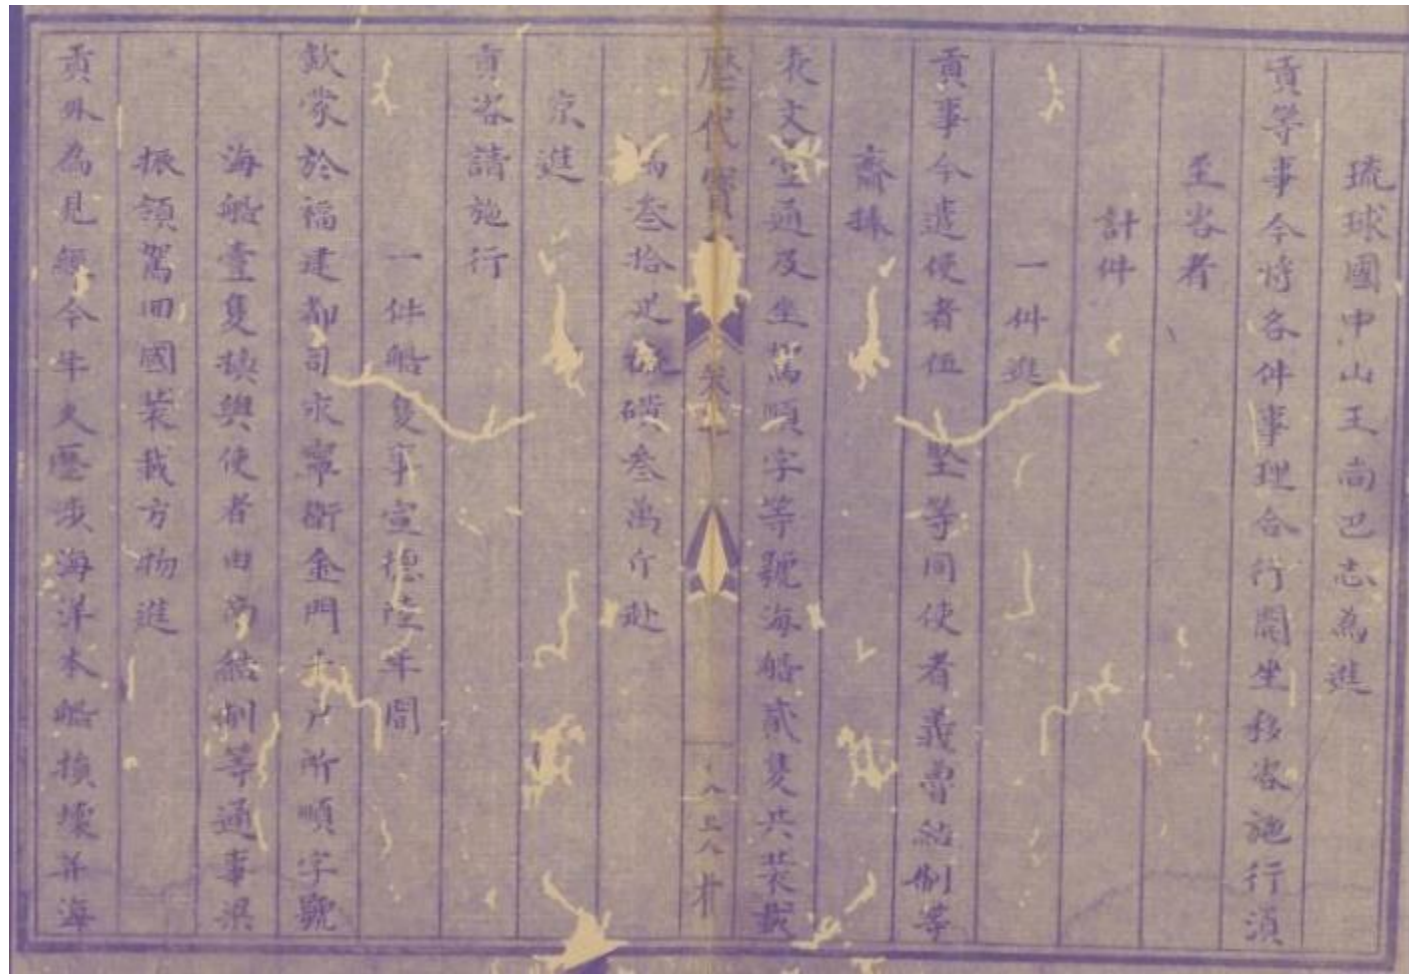 琉球國中山王尚巴志為進
貢等事今將各件事理合行開坐移咨施行須
至咨者
計件
一件進
貢事今遣使者伍 堅等同使者義魯結制等
齎捧
表文壹通及坐駕順字等號海船貳隻共裝載
歷代寳
馬叁拾疋硫磺叁萬斤赴
京進
貢咨請施行
一件船隻事宣德陸年間
欽蒙於福建都司永寧衛金門千戶所順字號
海船壹隻換與使者由南結制等通事梁
振領駕回國裝載方物進
貢外為見經今年久歷涉海洋本船損壞并海